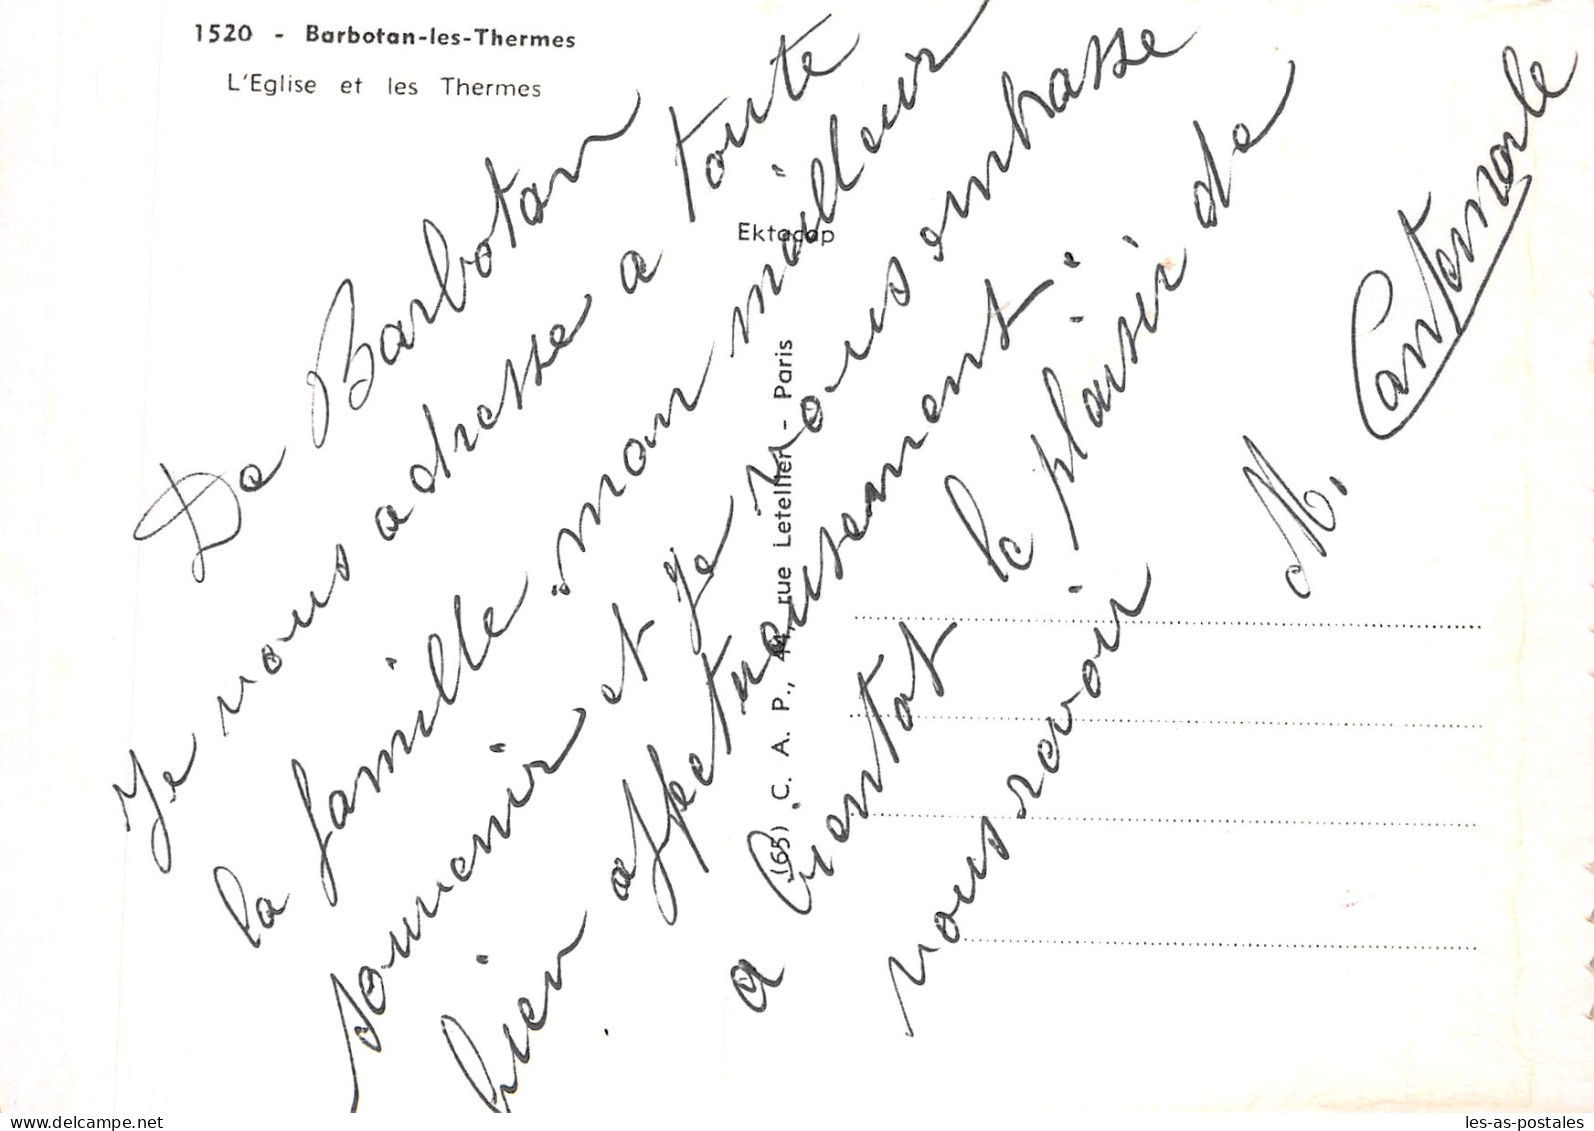 1520 - Barbotan-les-Thermes
L'Eglise et les Thermes
Ektacap
(65) C. A. P., 44, rue Letellier - Paris
De Barbotan
Je vous adresse a toute
la famille mon meilleur
souvenir et je vous embrasse
bien affectueusement.
a bientot le plaisir de
vous revoir
M.
www.delcampe.net
les-as-postales